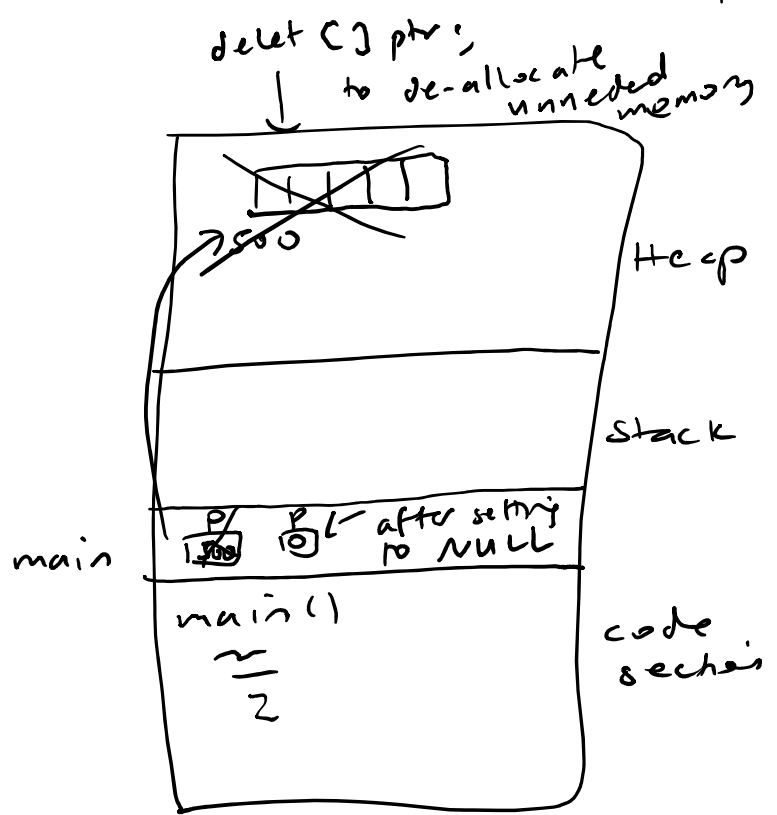 delet [] ptr;
to de-allocate
unneded
memory
500
Heap
Stack
P P after setting
500 0 to NULL
main
main()
code
section